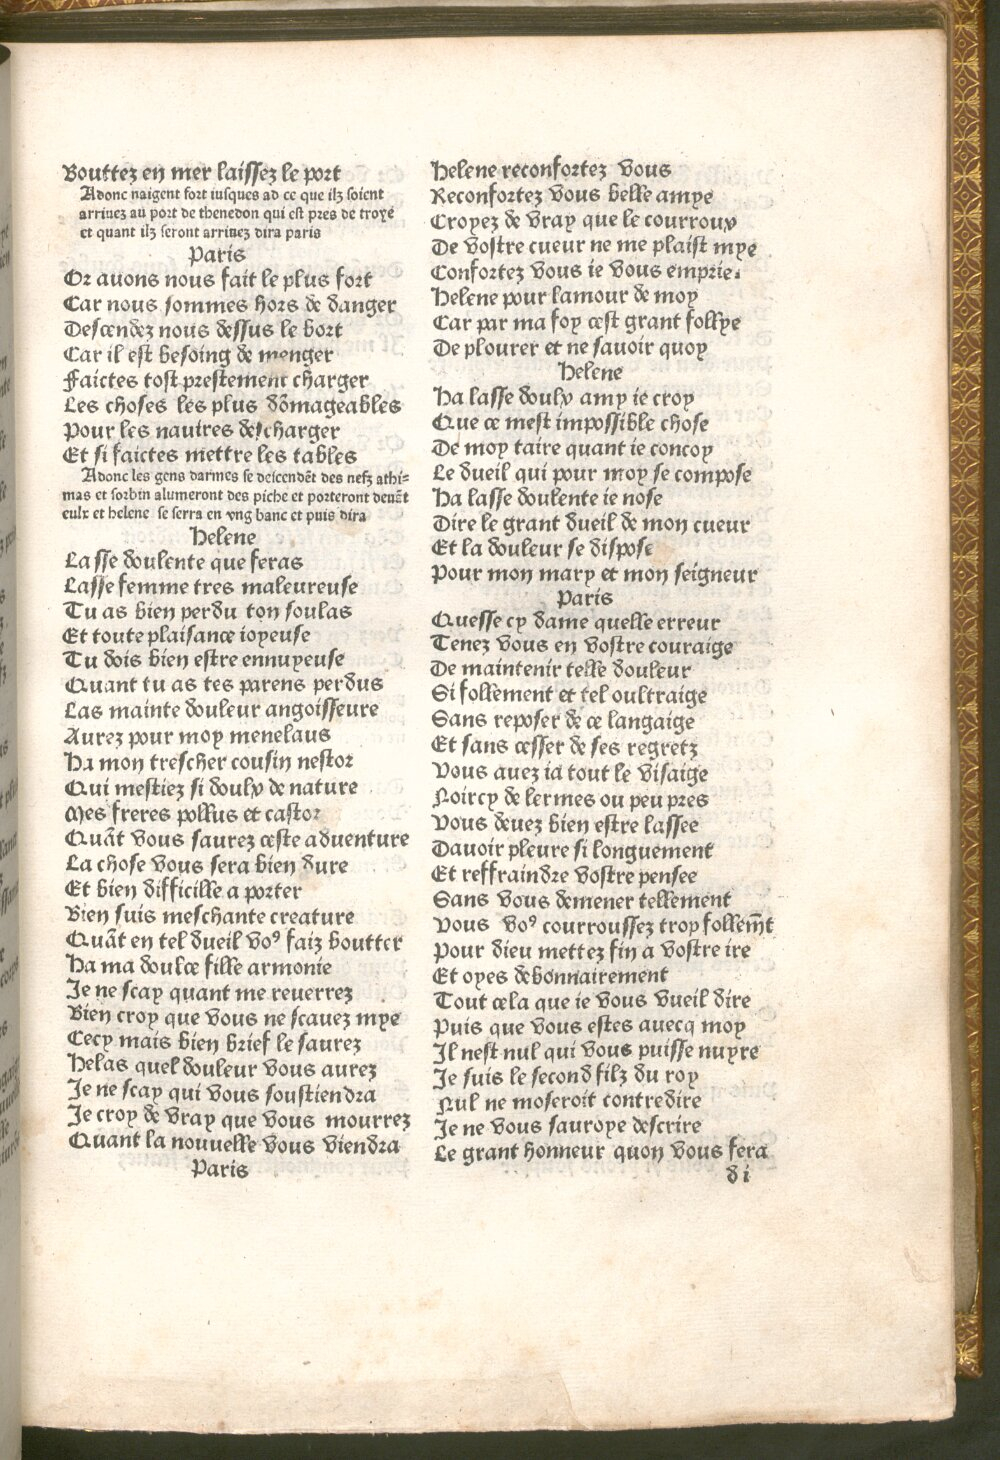 Bouttez en mer laissez le port
Adonc naigent fort iusques ad ce que ilz soient
arriuez au port de thenedon qui est pres de troye
et quant ilz seront arriuez dira paris
Paris
Or auons nous fait le plus fort
Car nous sommes hors de danger
Descendez nous dessus le bort
Car il est besoing de menger
Faictes tost prestement charger
Les choses les plus dõmageables
Pour les nauires descharger
Et si faictes mettre les tables
Adonc les gens darmes se descendẽt des nefz athi-
mas et sorbin alumeront des piche et porteront deuãt
eulx et helene se serra en vng banc et puis dira
Helene
Lasse doulente que feras
Lasse femme tres maleureuse
Tu as bien perdu ton soulas
Et toute plaisance ioyeuse
Tu dois bien estre ennuyeuse
Quant tu as tes parens perdus
Las mainte douleur angoisseure
Aurez pour moy menelaus
Ha mon trescher cousin nestor
Qui mestiez si doulx de nature
Mes freres pollus et castor
Quãt vous saurez ceste aduenture
La chose vous sera bien dure
Et bien difficille a porter
Bien suis meschante creature
Quãt en tel dueil voꝰ faiz boutter
Ha ma doulce fille armonie
Je ne scay quant me reuerrez
Bien croy que vous ne scauez mye
Cecy mais bien brief le saurez
Helas quel douleur vous aurez
Je ne scay qui vous soustiendra
Je croy de vray que vous mourrez
Quant la nouuelle vous viendra
Paris
Helene reconfortez vous
Reconfortez vous belle amye
Croyez de vray que le courroux
De vostre cueur ne me plaist mye
Confortez vous ie vous emprie.
Helene pour lamour de moy
Car par ma foy cest grant follye
De plourer et ne sauoir quoy
Helene
Ha lasse doulx amy ie croy
Que ce mest impossible chose
De moy taire quant ie concoy
Le dueil qui pour moy se compose
Ha lasse doulente ie nose
Dire le grant dueil de mon cueur
Et la douleur se dispose
Pour mon mary et mon seigneur
Paris
Quesse cy dame quelle erreur
Tenez vous en vostre couraige
De maintenir telle douleur
Si follement et tel oultraige
Sans reposer de ce langaige
Et sans cesser de ses regretz
Vous auez ia tout le visaige
Noircy de lermes ou peu pres
Vous deuez bien estre lassee
Dauoir pleure si longuement
Et reffraindre vostre pensee
Sans vous demener tellement
Vous voꝰ courroussez trop follem̃t
Pour dieu mettez fin a vostre ire
Et oyes debonnairement
Tout cela que ie vous vueil dire
Puis que vous estes auecq moy
Il nest nul qui vous puisse nuyre
Je suis le second filz du roy
Nul ne moseroit contredire
Je ne vous sauroye descrire
Le grant honneur quon vous fera
d i